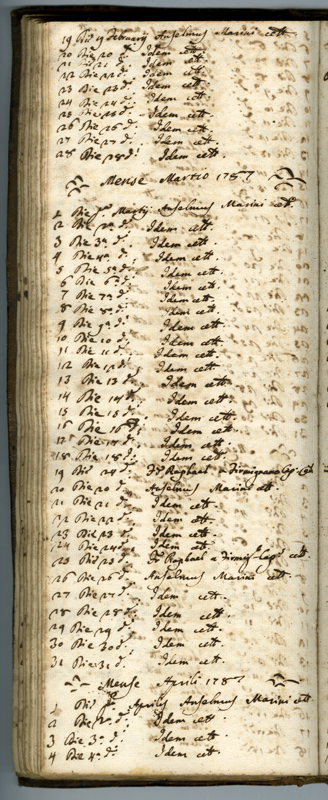 19 Die 19 Februarij Anselmus Marini cett.
20 Die 20 d.ⁱ Idem cett.
21 Die 21 d.ⁱ Idem cett.
22 Die 22 d.ⁱ Idem cett.
23 Die 23 d.ⁱ Idem cett.
24 Die 24 d.ⁱ Idem cett.
25 Die 25 d.ⁱ Idem cett.
26 Die 26 d.ⁱ Idem cett.
27 Die 27 d.ⁱ Idem cett.
28 Die 28 d.ⁱ Idem cett.
Mense Martio 1787
1 Die p.ª Martij Anselmus Marini cett.
2 Die 2ª d.ⁱ Idem cett.
3 Die 3ª d.ⁱ Idem cett.
4 Die 4ª d.ⁱ Idem cett.
5 Die 5ª d.ⁱ Idem cett.
6 Die 6ª d.ⁱ Idem cett.
7 Die 7ª d.ⁱ Idem cett.
8 Die 8ª d.ⁱ Idem cett.
9 Die 9ª d.ⁱ Idem cett.
10 Die 10 d.ⁱ Idem cett.
11 Die 11 d.ⁱ Idem cett.
12 Die 12 d.ⁱ Idem cett.
13 Die 13 d.ⁱ Idem cett.
14 Die 14 d.ⁱ Idem cett.
15 Die 15 d.ⁱ Idem cett.
16 Die 16 d.ⁱ Idem cett.
17 Die 17 d.ⁱ Idem cett.
18 Die 18 d.ⁱ Idem cett.
19 Die d.ⁱ Fr. Raphael a Firmignano
20 Die 20 d.ⁱ Anselmus Marini cett.
21 Die 21 d.ⁱ Idem cett.
22 Die 22 d.ⁱ Idem cett.
23 Die 23 d.ⁱ Idem cett.
24 Die 24 d.ⁱ Idem cett.
25 Die 25 d.ⁱ Fr. Raphael a Firmig.º Cap.º cett.
26 Die 26 d.ⁱ Anselmus Marini cett.
27 Die 27 d.ⁱ Idem cett.
28 Die 28 d.ⁱ Idem cett.
29 Die 29 d.ⁱ Idem cett.
30 Die 30 d.ⁱ Idem cett.
31 Die 31 d.ⁱ Idem cett.
Mense Aprili 1787
1 Die p.ª Aprilis Anselmus Marini cett.
2 Die 2ª d.ⁱ Idem cett.
3 Die 3ª d.ⁱ Idem cett.
4 Die 4ª d.ⁱ Idem cett.